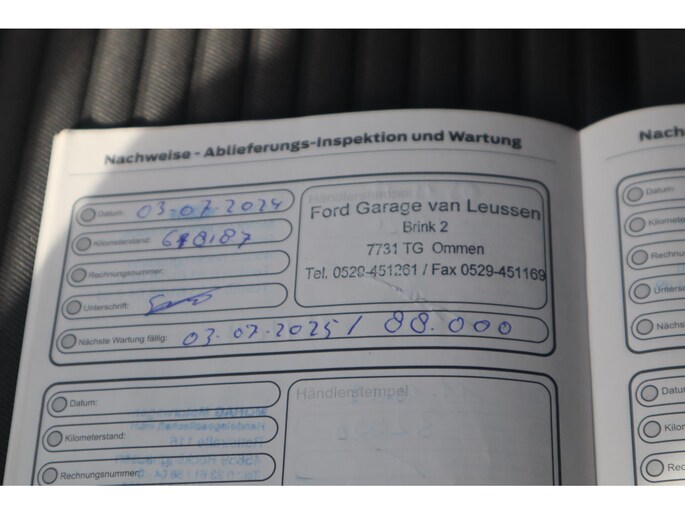 Nachweise - Ablieferungs-Inspektion und Wartung
Datum: 03-07-2024
Kilometerstand:
Rechnungsnummer:
Unterschrift:
Händlerstempel
Ford Garage van Leussen
Brink 2
7731 TG Ommen
Tel. 0529-451261 / Fax 0529-451169
Nächste Wartung fällig: 03-07-2025 / 88.000
Datum:
Kilometerstand:
Rechnungsnummer:
Händlerstempel
Nach
Datum:
Kilomete
Rechnu
Unters
Nächs
Datu
Kilon
Rec